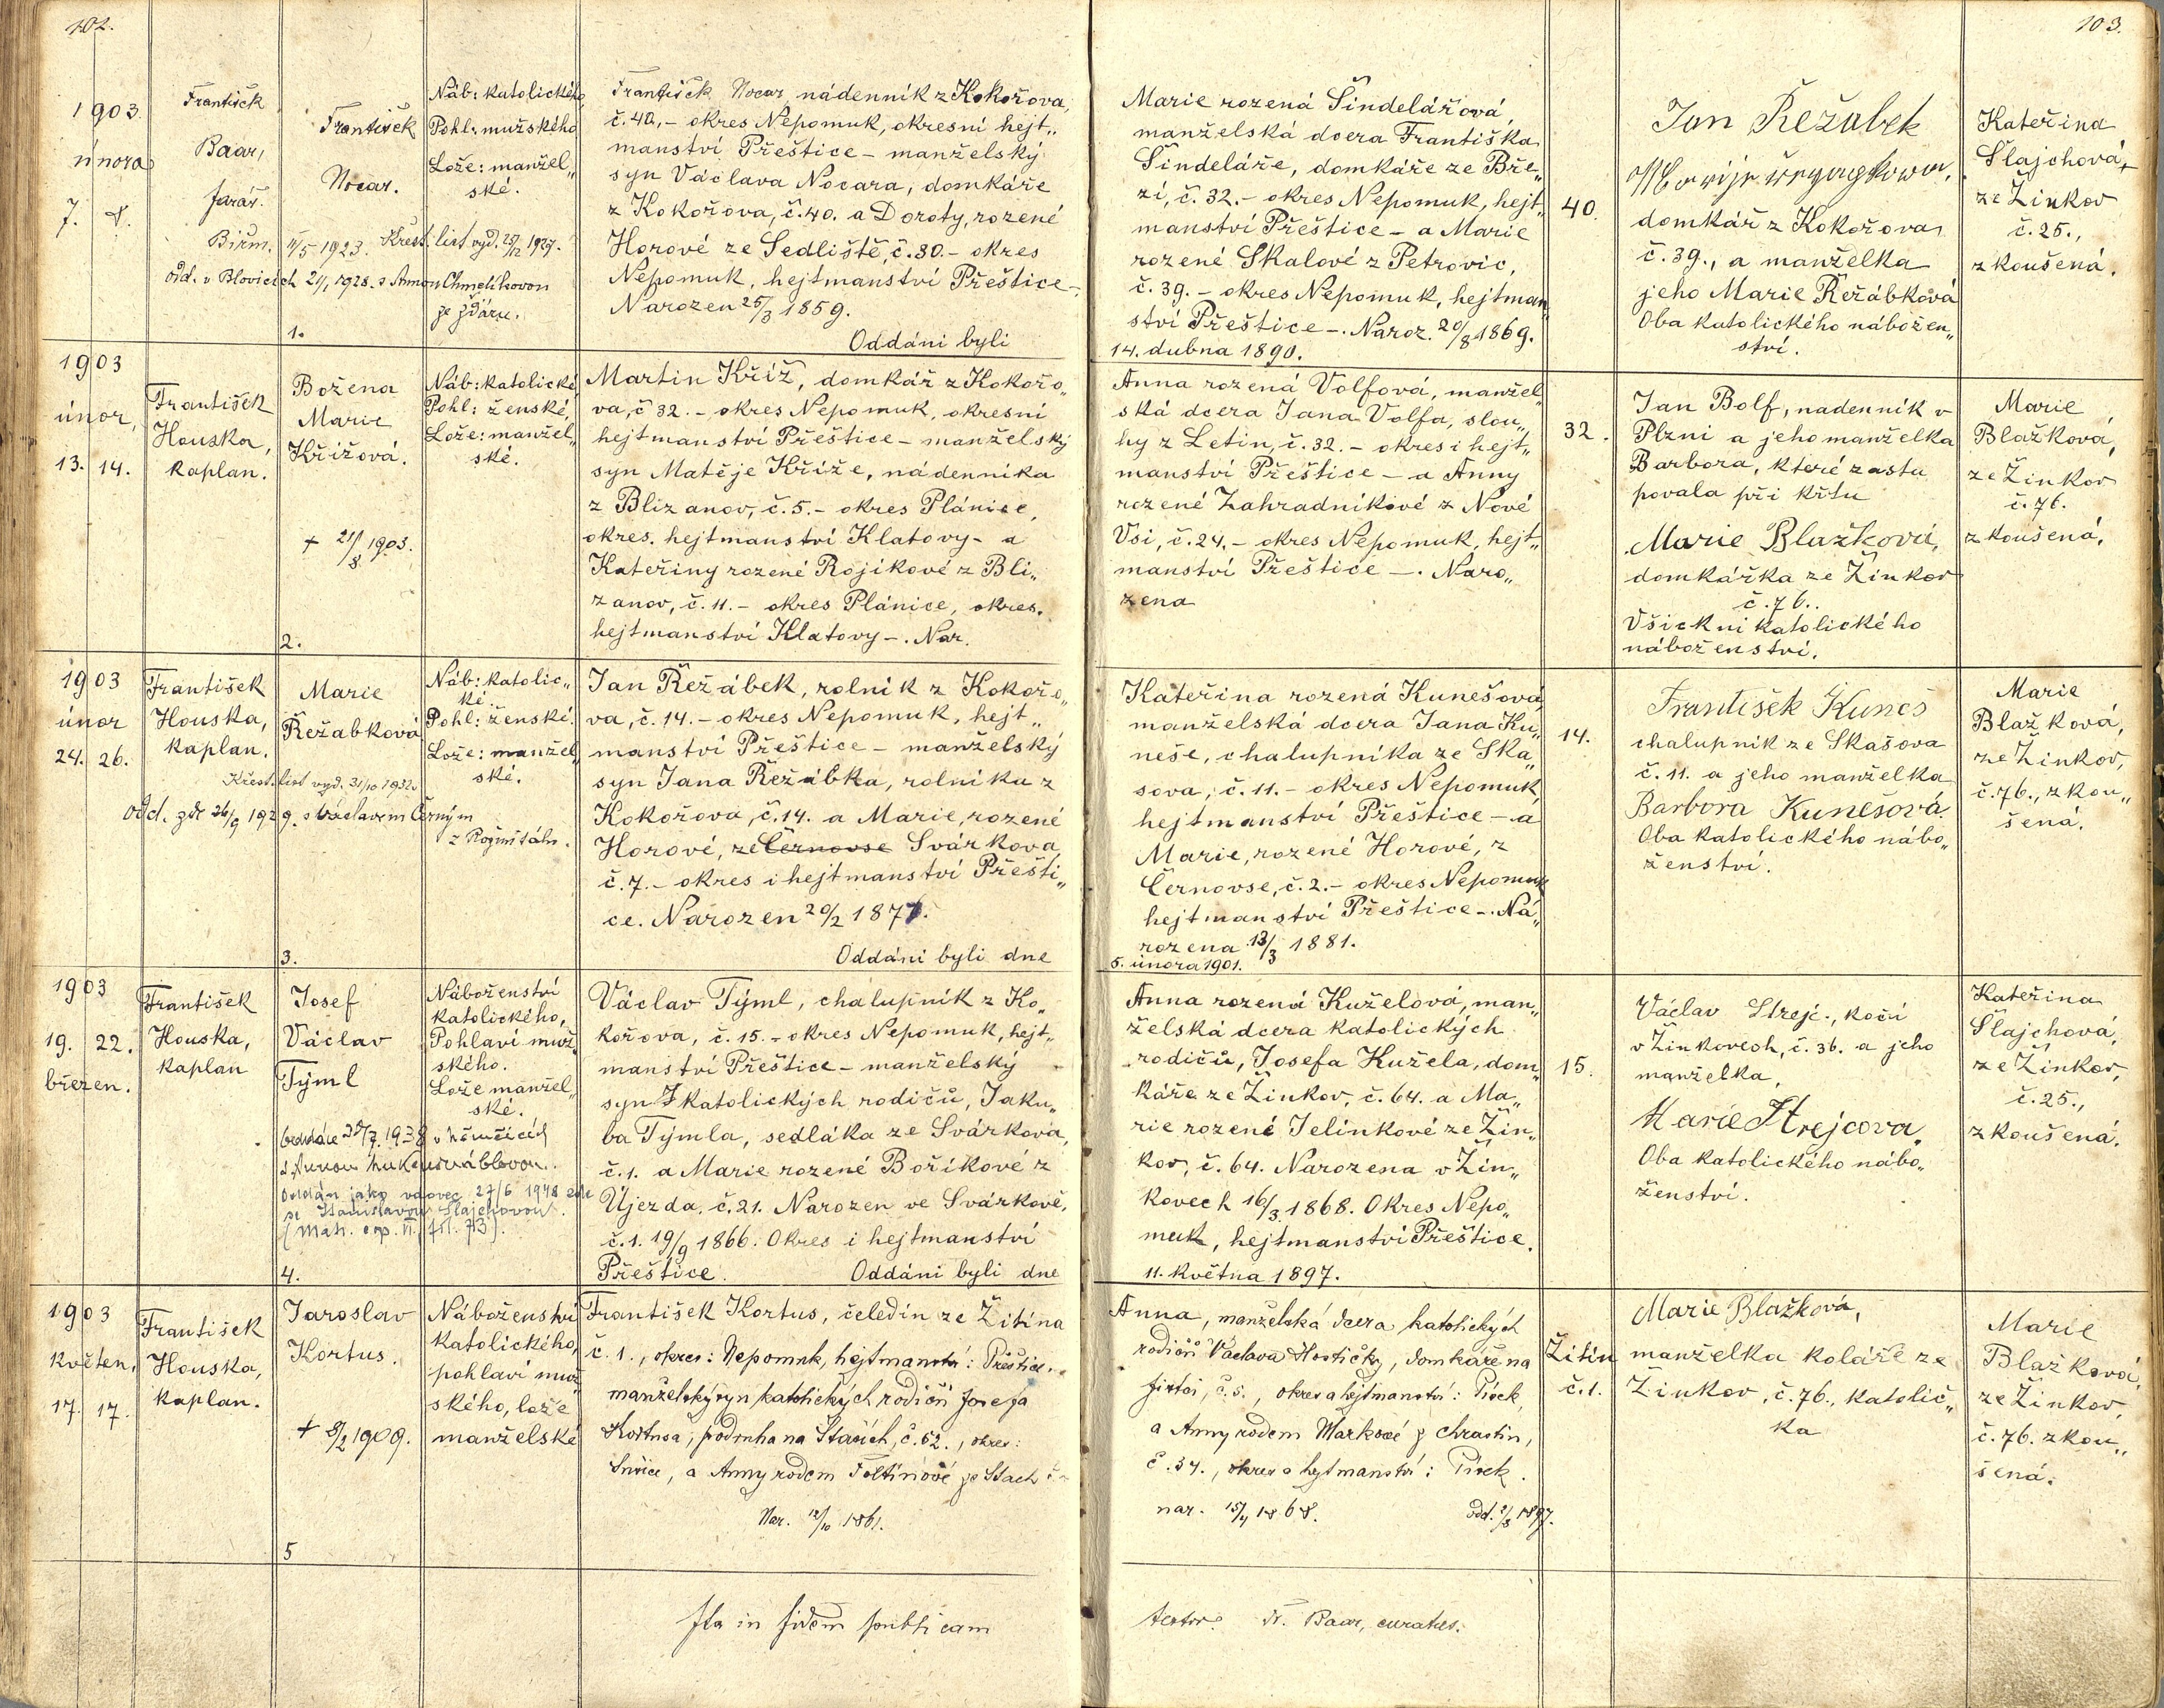 102.
103.
1903.
února
7. 8.
František
Baar,
farář.
František
Nocar.
Biřm. 1923. Křest. list vyd. 1927.
odd. v Blovicích 21/1 1928. s Annou Chmelíkovou
ze Žďáru.
1.
Náb: katolického
Pohl: mužského
Lože: manžel„
ské.
František Nocar nádenník z Kokořova,
č. 40, – okres Nepomuk, okresní hejt„
manství Přeštice – manželský
syn Václava Nocara, domkáře
z Kokořova, č. 40. a Doroty, rozené
Horové ze Sedliště, č. 30. – okres
Nepomuk, hejtmanství Přeštice –.
Narozen 25/3 1859.
Oddáni byli
Marie rozená Šindelářová,
manželská dcera Františka
Šindeláře, domkáře ze Bře„
zí, č. 32. – okres Nepomuk, hejt„
manství Přeštice – a Marie
rozené Skalové z Petrovic,
č. 39. – okres Nepomuk, hejtman
ství Přeštice –. Naroz. 20/8 1869.
14. dubna 1890.
40.
Jan Řežabek
domkář z Kokořova
č. 39., a manželka
jeho Marie Řežábková
Oba katolického nábožen„
ství.
Kateřina
Šlajchová,
ze Žinkov
č. 25.,
zkoušená.
1903
únor,
13. 14.
František
Houska,
kaplan.
Božena
Marie
Křížová.
+ 21/8 1903.
2.
Náb: katolické,
Pohl: ženské,
Lože: manžel„
ské.
Martin Kříž, domkář z Kokořo„
va, č 32. – okres Nepomuk, okresní
hejtmanství Přeštice – manželský
syn Matěje Kříže, nádenníka
z Blizanov, č. 5. – okres Plánice,
okres. hejtmanství Klatovy – a
Kateřiny rozené Rojíkové z Bli„
zanov, č. 11. – okres Plánice, okres.
hejtmanství Klatovy –. Nar.
Anna rozená Volfová, manžel
ská dcera Jana Volfa, slou„
hy z Letin, č. 32. – okres i hejt„
manství Přeštice – a Anny
rozené Zahradníkové z Nové
Vsi, č. 24. – okres Nepomuk, hejt„
manství Přeštice –. Naro„
zena
32.
Jan Bolf, nadenník v
Plzni a jeho manželka
Barbora, které zastu
povala při křtu
Marie Blažková,
domkářka ze Žinkov
č. 76..
Všickni katolického
náboženství.
Marie
Blažková,
ze Žinkov
č. 76.
zkoušená.
1903
únor
24. 26.
František
Houska,
kaplan.
Marie
Řežabková
Křest. list vyd. 31/10 1932.
Odd. zde 26/9 1929. s Václavem Černým
z Rožmitálu.
3.
Náb: katolic„
ké.
Pohl: ženské.
Lože: manžel„
ské.
Jan Řežábek, rolník z Kokořo„
va, č. 14. – okres Nepomuk, hejt„
manství Přeštice – manželský
syn Jana Řežábka, rolníka z
Kokořova, č. 14. a Marie, rozené
Horové, ze Černovse Svárkova
č. 7. – okres i hejtmanství Přešti„
ce. Narozen 20/2 1877.
Oddáni byli dne
Kateřina rozená Kunešová
manželská dcera Jana Ku„
neše, chalupníka ze Ska„
šova, č. 11. – okres Nepomuk,
hejtmanství Přeštice – a
Marie, rozené Horové, z
Černovse, č. 2. – okres Nepomuk
hejtmanství Přeštice –. Na„
rozena 13/3 1881.
5. února 1901.
14.
František Kuneš
chalupník ze Skašova
č. 11. a jeho manželka
Barbora Kunešová.
Oba katolického nábo„
ženství.
Marie
Blažková,
ze Žinkov,
č. 76., zkou„
šená.
1903
19. 22.
březen.
František
Houska,
kaplan
Josef
Václav
Týml
Oddán jako vdovec 27/6 1948 zde
se Stanislavou Šlajchovou.
4.
Náboženství
katolického,
Pohlaví muž„
ského.
Lože manžel„
ské.
Václav Týml, chalupník z Ko„
kořova, č. 15. – okres Nepomuk, hejt„
manství Přeštice – manželský
syn katolických rodičů, Jaku„
ba Týmla, sedláka ze Svárkova,
č. 1. a Marie rozené Boříkové z
Újezda, č. 21. Narozen ve Svárkově,
č. 1. 19/9 1866. Okres i hejtmanství
Přeštice. Oddáni byli dne
Anna rozená Kuželová, man„
želská dcera katolických
rodičů, Josefa Kužela, dom„
káře ze Žinkov, č. 64. a Ma„
rie rozené Jelínkové ze Žin„
kov, č. 64. Narozena v Žin„
kovech 16/3. 1868. Okres Nepo„
muk, hejtmanství Přeštice.
11. května 1897.
15.
Václav Strejc., kočí
v Žinkovech, č. 36. a jeho
manželka,
Marie Strejcova.
Oba katolického nábo„
ženství.
Kateřina
Šlajchová,
ze Žinkov,
č. 25.,
zkoušená.
1903
květen,
17. 17.
František
Houska,
kaplan.
Jaroslav
Kortus.
+ 8/2 1909.
5
Náboženství
katolického,
pohlaví muž„
ského, lože
manželské
František Kortus, čeledín ze Žitína
č. 1., okres: Nepomuk, hejtmanství: Přeštice.
manželský syn katolických rodičů Josefa
Kortusa, podruha na Stašich, č. 52., okres:
Sušice, a Anny rodem ze Stach
Nar. 12/10 1861.
Anna, manželská dcera katolických
rodičů Václava Hostičky, domkáře na
č. 5., okres a hejtmanství: Písek,
a Anny rodem Markové z Chrastin,
č. 34., okres a hejtmanství: Písek.
nar. 15/4 1868. odd. 2/8 1897.
Žitín
č. 1.
Marie Blažková,
manželka koláře ze
Žinkov, č. 76., katolič„
ka
Marie
Blažková,
ze Žinkov,
č. 76. zkou„
šená.
Ita in fidem publicam
testor: Fr. Baar, curatus.